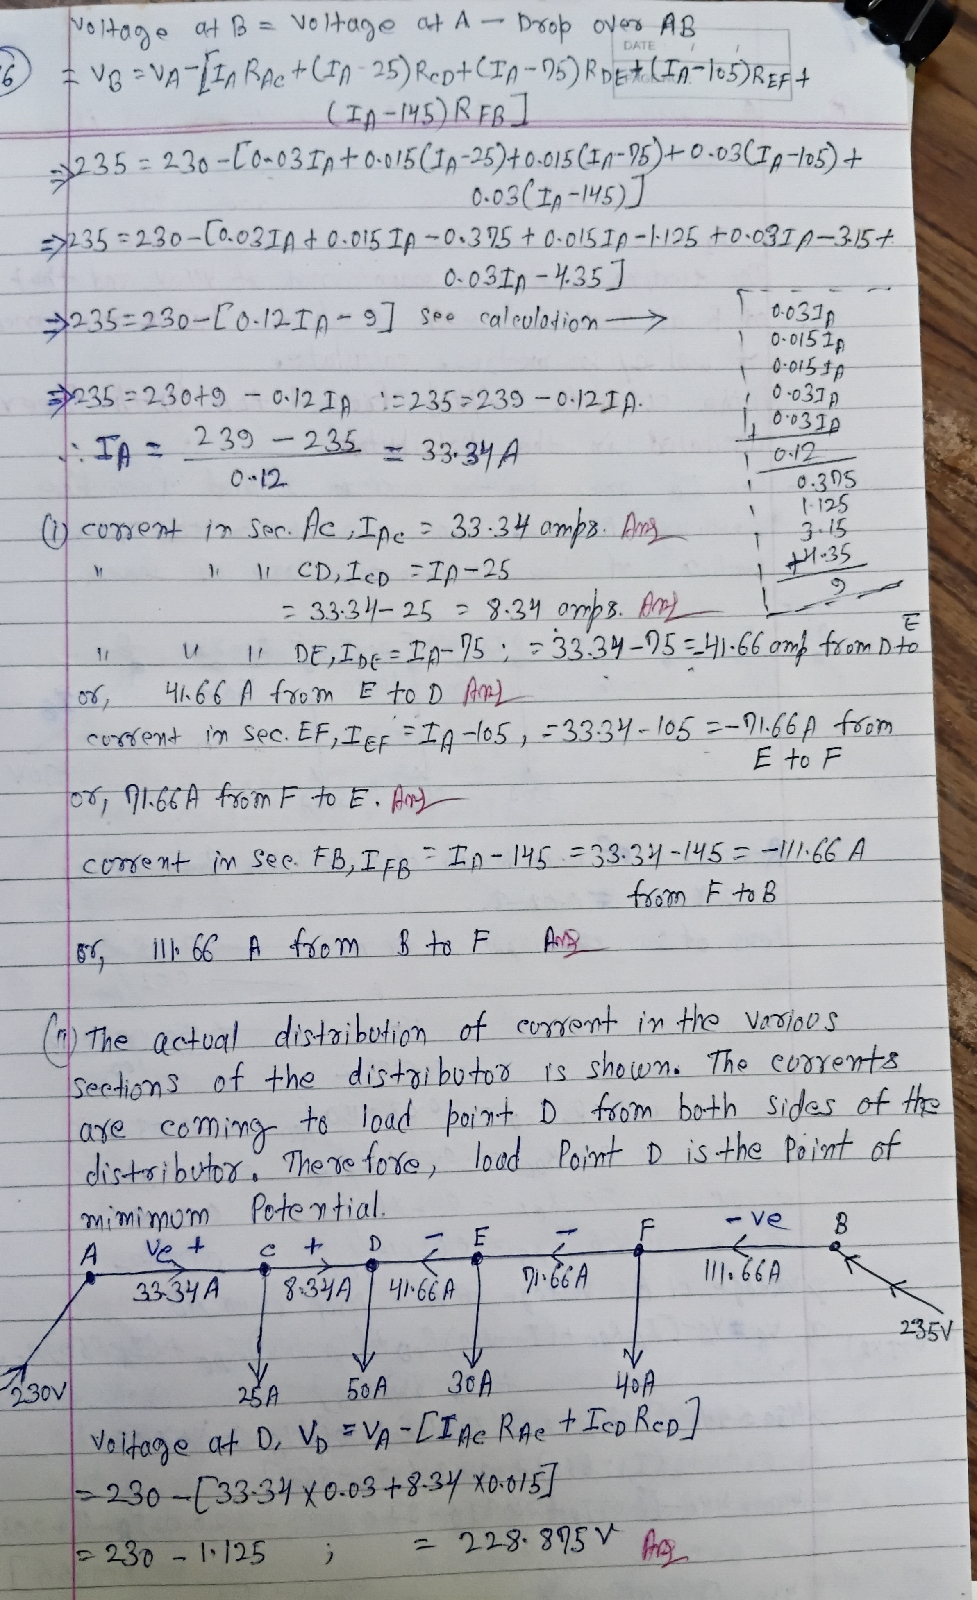 Voltage at B = Voltage at A - Drop over AB
DATE
6
= VB = VA - [IA RAC + (IA - 25) RCD + (IA - 75) RDE + (IA - 105) REF +
(IA - 145) RFB]
⇒ 235 = 230 - [0.03 IA + 0.015 (IA - 25) + 0.015 (IA - 75) + 0.03 (IA - 105) +
0.03 (IA - 145)]
⇒ 235 = 230 - [0.03 IA + 0.015 IA - 0.375 + 0.015 IA - 1.125 + 0.03 IA - 3.15 +
0.03 IA - 4.35]
⇒ 235 = 230 - [0.12 IA - 9] see calculation →
0.03 IA
0.015 IA
0.015 IA
0.03 IA
+ 0.03 IA
0.12
0.375
1.125
3.15
+4.35
9
⇒ 235 = 230+9 - 0.12 IA := 235 = 239 - 0.12 IA.
∴ IA = 239 - 235 / 0.12 = 33.34 A
(i) current in sec. AC, IAC = 33.34 amps. Ans
" " " CD, ICD = IA - 25
= 33.34 - 25 = 8.34 amps. Ans
" " " DE, IDE = IA - 75 ; = 33.34 - 75 = -41.66 amp from D to E
or, 41.66 A from E to D Ans
current in sec. EF, IEF = IA - 105, = 33.34 - 105 = -71.66 A from
E to F
or, 71.66A from F to E. Ans
current in sec. FB, IFB = IA - 145 = 33.34 - 145 = -111.66 A
from F to B
or, 111.66 A from B to F Ans
(ii) The actual distribution of current in the various
sections of the distributor is shown. The currents
are coming to load point D from both sides of the
distributor. Therefore, load Point D is the Point of
mimimum Potential.
A Ve + C + D - E - F - ve B
33.34A 8.34A 41.66A 71.66A 111.66A
230V 25A 50A 30A 40A 235V
Voltage at D, VD = VA - [IAC RAC + ICD RCD]
= 230 - [33.34 X 0.03 + 8.34 X 0.015]
= 230 - 1.125 ; = 228.875 V Ans